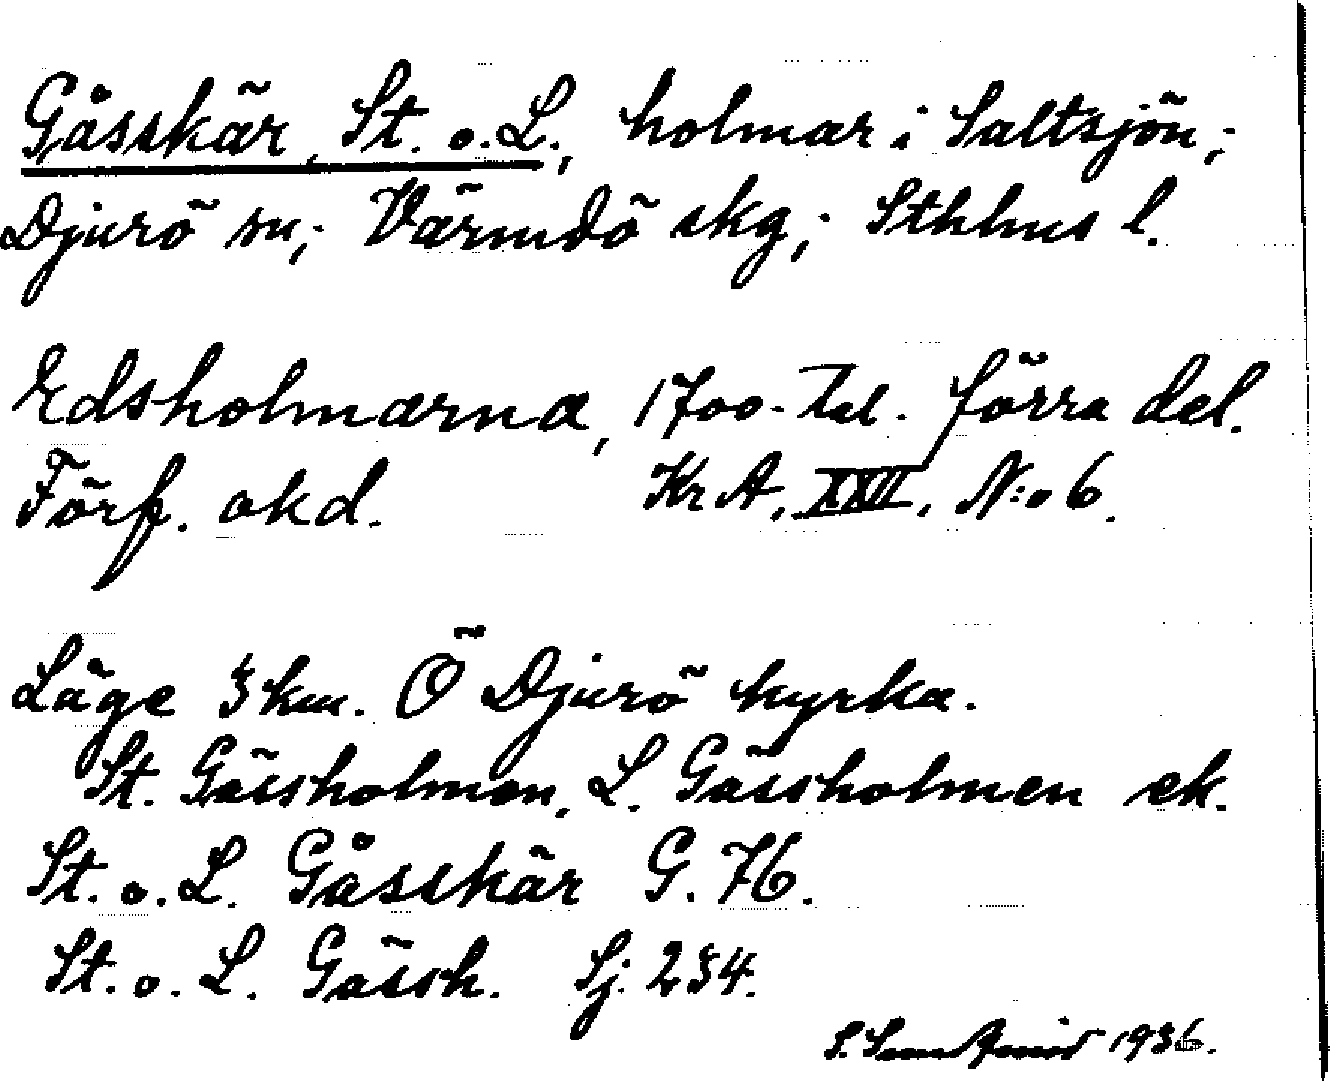 Gåsskär, St. o. L., holmar i Saltsjön;
Djurö sn; Värmdö skg; Sthlms l.
Edsholmarna, 1700-tal. förra del.
Förf. okd. Kr A. XXII. N:o 6.
Läge 3 km. Ö Djurö kyrka.
St. Gässholmen, L. Gässholmen ek.
St. o. L. Gåsskär G. 76.
St. o. L. Gässh. Sj. 234.
1936.